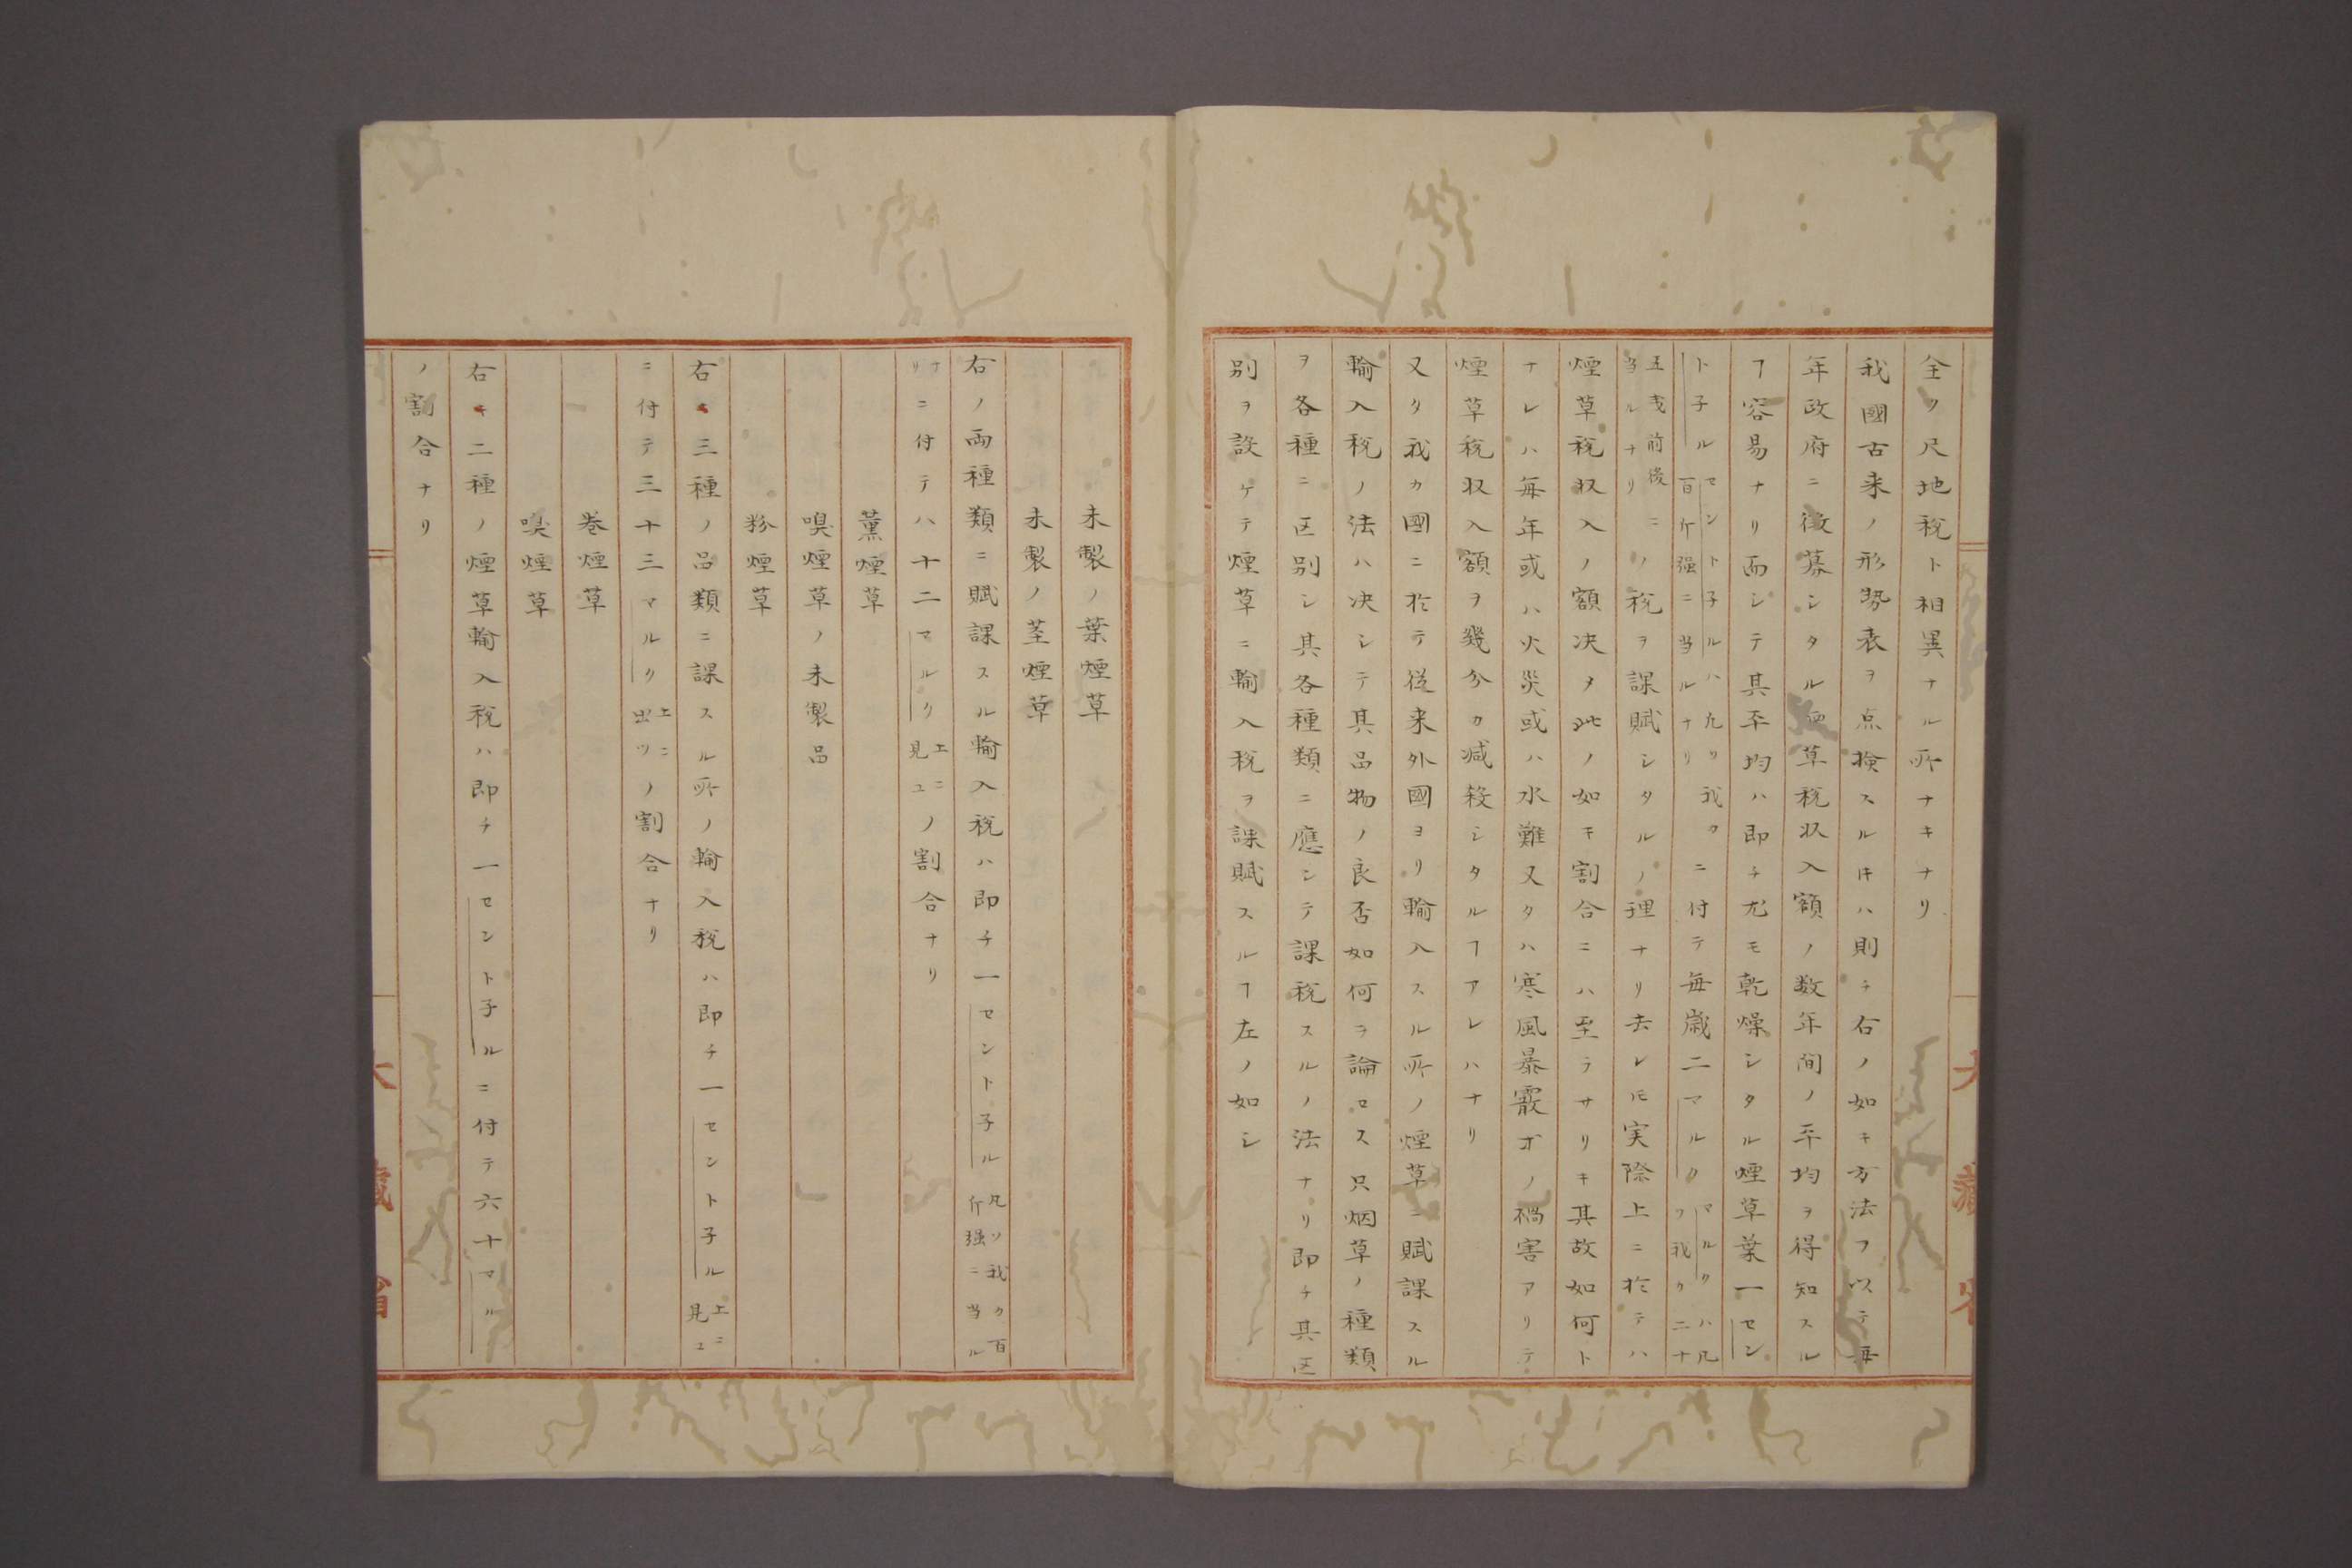 全ク尺地税ト相異ナル所ナキナリ
我國古来ノ形勢表ヲ点検スルキハ則チ右ノ如キ方法ヲ以テ毎
年政府ニ徴募シタル煙草税収入額ノ数年間ノ平均ヲ得知スル
ヿ容易ナリ而シテ其平均ハ即チ尤モ乾燥シタル煙草葉一セン
ト子ルセント子ルハ凡ソ我カ百斤强ニ当ルナリニ付テ毎歳二マルクマルクハ凡ソ我カ二十
五戋前後ニ当ルナリノ税ヲ課賦シタルノ理ナリ去レ𪜈実際上ニ於テハ
煙草税収入ノ額决〆此ノ如キ割合ニハ至ラサリキ其故如何ト
ナレハ毎年或ハ火災或ハ水難又タハ寒風暴霰オノ禍害アリテ
煙草税収入額ヲ幾分カ减殺シタルヿアレハナリ
又タ我カ國ニ於テ従来外國ヨリ輸入スル所ノ煙草ニ賦課スル
輸入税ノ法ハ决シテ其品物ノ良否如何ヲ論セス只烟草ノ種類
ヲ各種ニ区别シ其各種類ニ應シテ課税スルノ法ナリ即チ其区
别ヲ設ケテ煙草ニ輸入税ヲ課賦スルヿ左ノ如シ
大藏省
未製ノ葉煙草
未製ノ茎煙草
右ノ両種類ニ賦課スル輸入税ハ即チ一セント子ル凡ソ我カ百斤强ニ当ル
ナリニ付テハ十二マルク上ニ見ユノ割合ナリ
薰煙草
嗅煙草ノ未製品
粉煙草
右三種ノ品類ニ課スル所ノ輸入税ハ即チ一セント子ル上ニ見ユ
ニ付テ三十三マルク上ニ出ツノ割合ナリ
巻煙草
嗅煙草
右二種ノ煙草輸入税ハ即チ一セント子ルニ付テ六十マル
ノ割合ナリ
大藏省